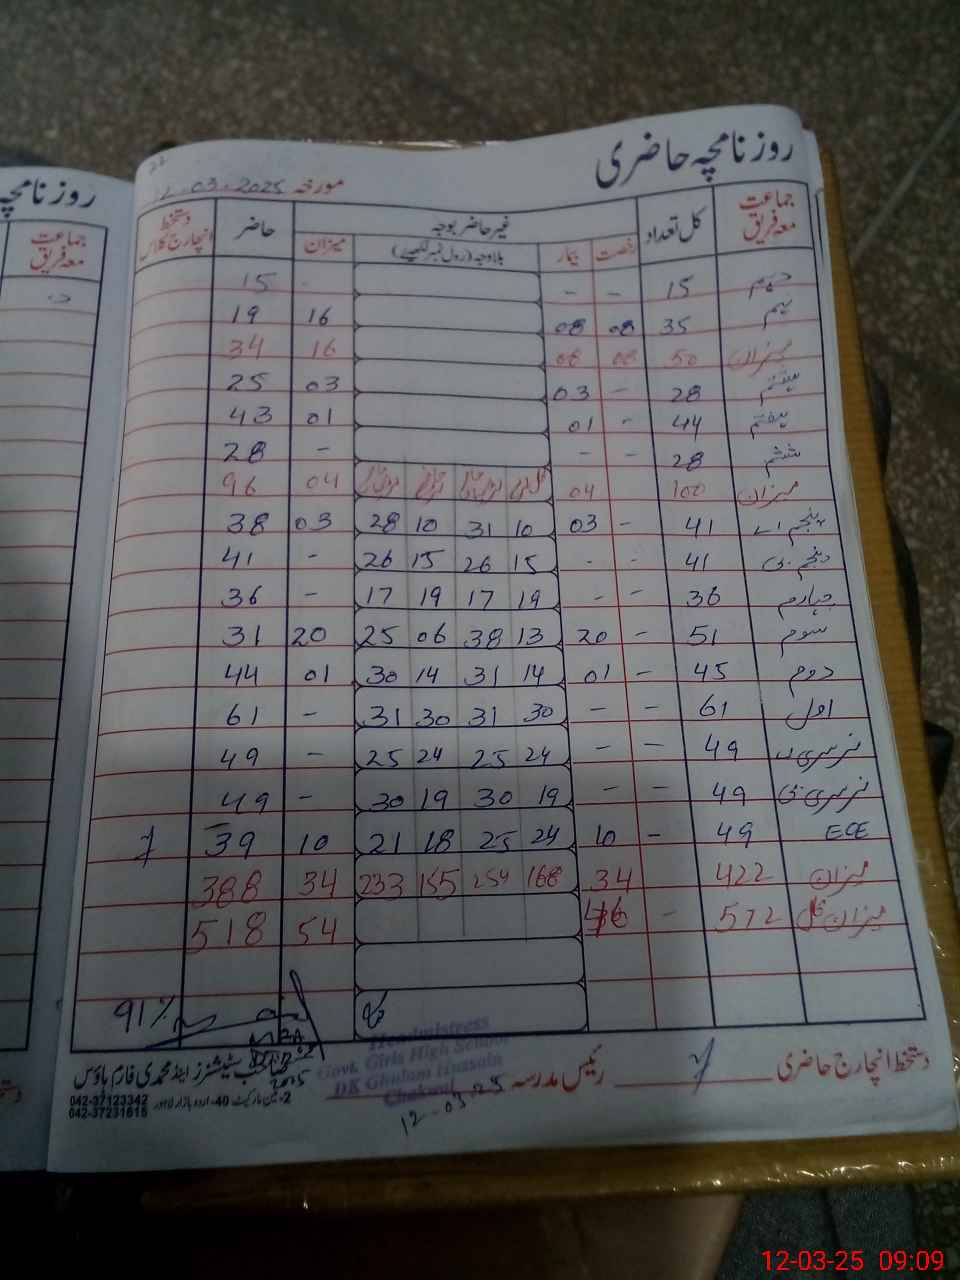 روزنامچہ حاضری
مورخہ 12.03.2025
جماعت معہ فریق کل تعداد غیر حاضر بوجہ حاضر دستخط انچارج کلاس
رخصت بیمار بلاوجہ (رول نمبر لکھیے) میزان
دہم 15 - - - 15
نہم 35 08 08 16 19
میزان 50 08 08 16 34
ہشتم 28 - 03 03 25
ہفتم 44 - 01 01 43
ششم 28 - - - 28
میزان 100 04 04 96
پنجم اے 41 - 03 10 31 10 28 03 38
پنجم بی 41 - - 15 26 15 26 - 41
چہارم 36 - - 19 17 19 17 - 36
سوم 51 - 20 13 38 06 25 20 31
دوم 45 - 01 14 31 14 30 01 44
اول 61 - - 30 31 30 31 - 61
نرسری 49 - - 24 25 24 25 - 49
نرسری بی 49 - - 19 30 19 30 - 49
ECE 49 - 10 24 25 18 21 10 39
میزان 422 34 168 254 155 233 34 388
میزان کل 572 - 54 518
91%
Headmistress
Govt. Girls High School
DK Ghulam Hussain
Chakwal
دستخط انچارج حاضری رئیس مدرسہ
12-03-25
سٹیشنرز اینڈ محمدی فارم ہاؤس
2015
2-مین مارکیٹ 40-اردو بازار لاہور
042-37123342
042-37231615
روزنامچہ
جماعت معہ فریق
12-03-25 09:09